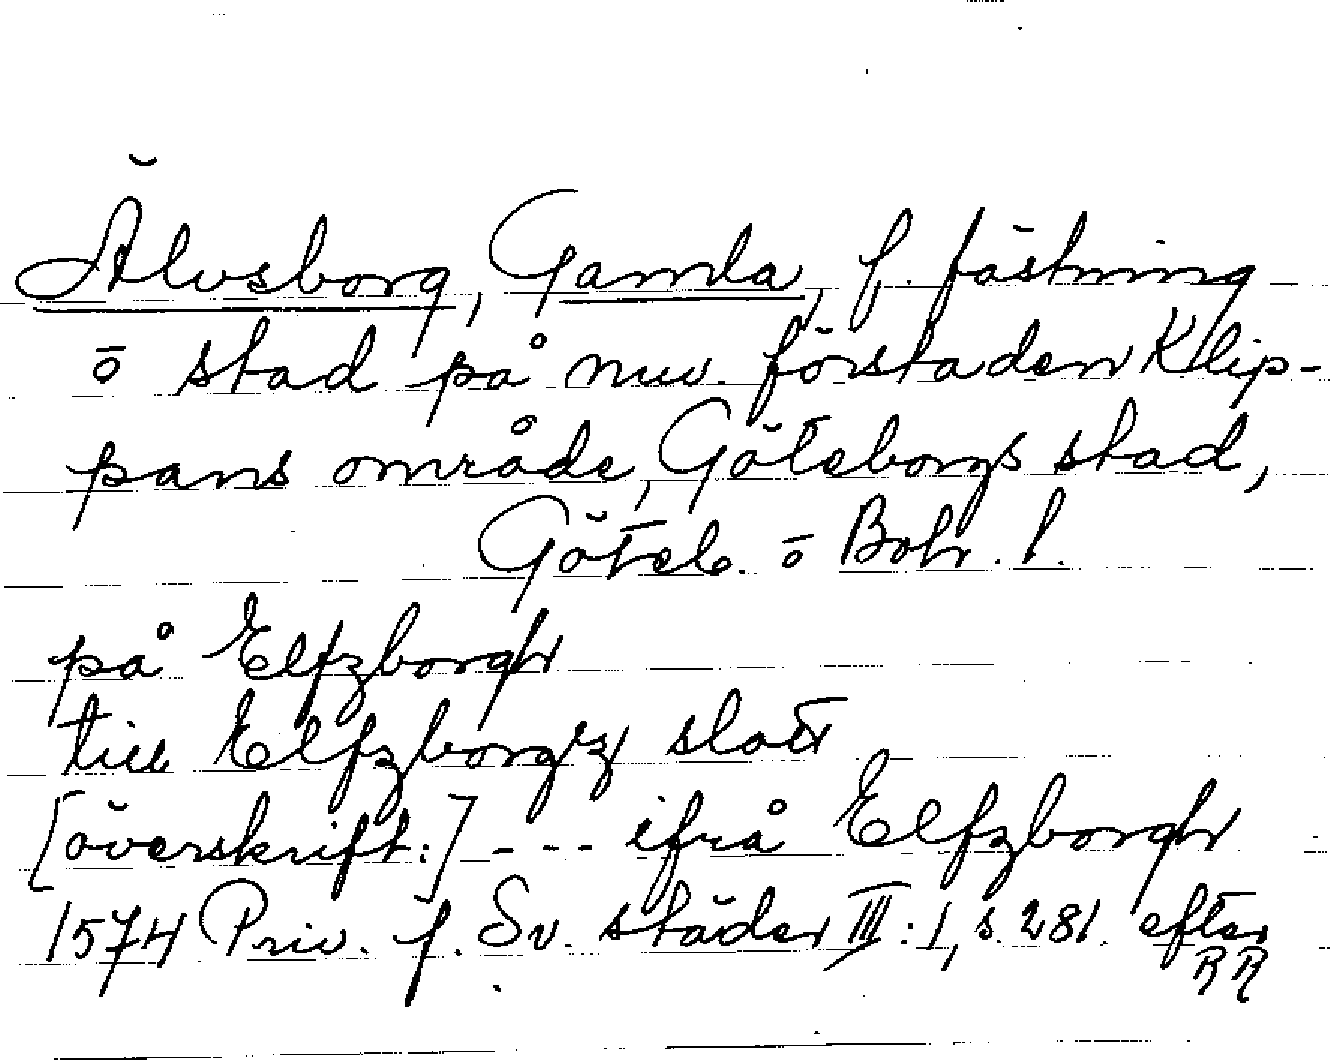 Älvsborg, Gamla, f. fästning
o stad på nuv. förstaden Klip-
pans område, Göteborgs stad,
Göteb. o Boh. l.
på Elfzborgh
till Elfzborgz slott
[överskrift:] --- ifrå Elfzborgh
1574 Priv. f. Sv. städer III:1, s. 281. efter
RR